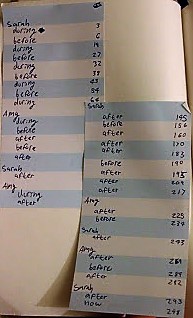 Sarah
during 3
before 6
during 19
before 27
during 32
before 38
during
before 54
during
Amy
during
before
after
before
after
Sarah
after
Amy
during
after
Sarah
after 145
before 156
after 160
before 170
after 183
before 190
after 195
before 209
after 217
Amy
before 225
before 234
Sarah
after 243
Amy
after
before
after
Sarah 282
after
now 293
298